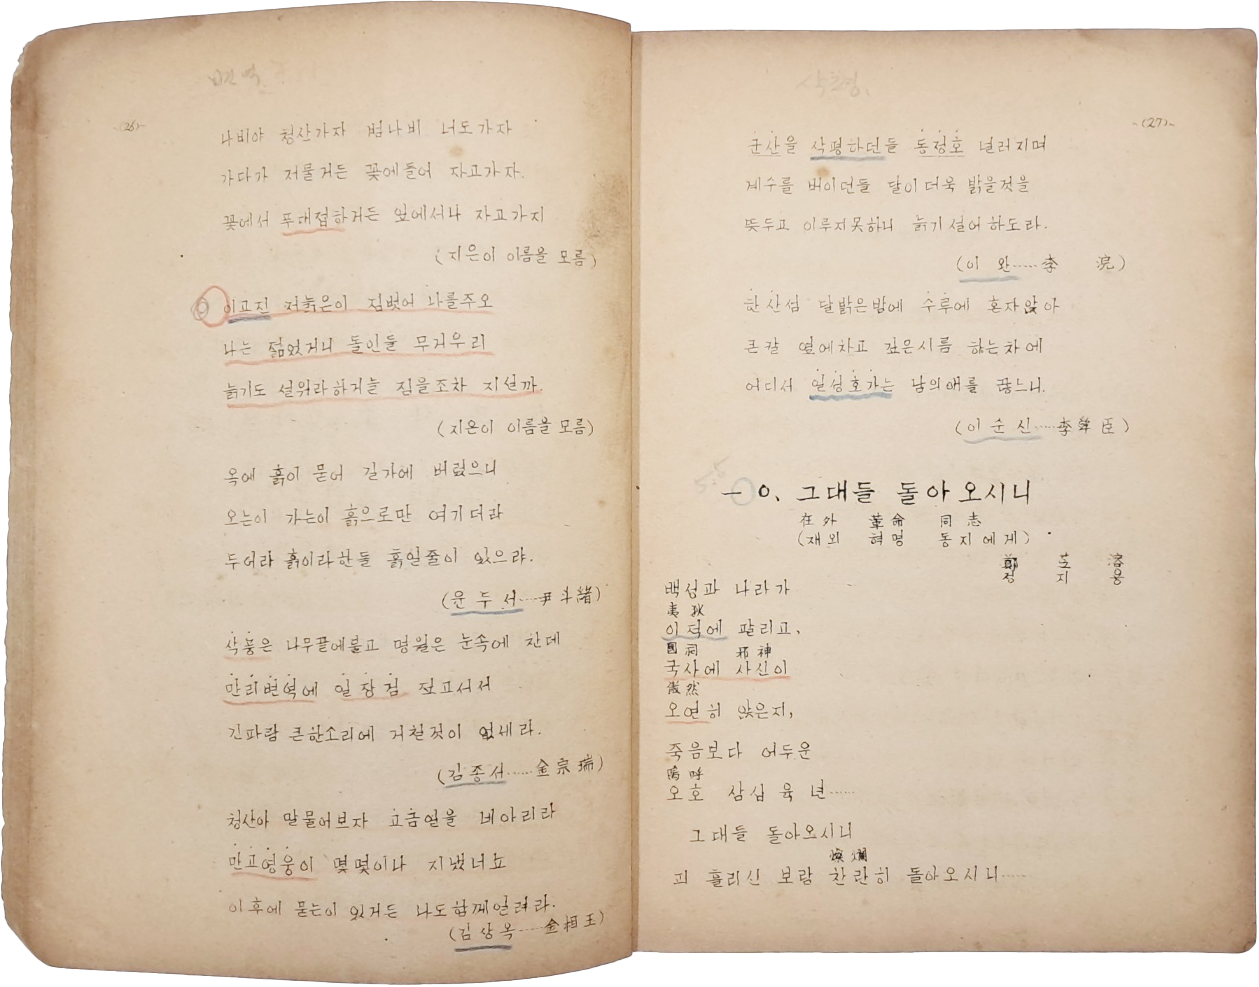 -(26)-
변역
나비야 청산가자 범나비 너도가자
가다가 저물거든 꽃에들어 자고가자.
꽃에서 푸대접하거든 잎에서나 자고가지
(지은이 이름을 모름)
이고진 저늙은이 짐벗어 나를주오
나는 젊었거니 돌인들 무거우리
늙기도 설워라하거늘 짐을조차 지실까.
(지은이 이름을 모름)
옥에 흙이 묻어 길가에 버렸으니
오는이 가는이 흙으로만 여기더라
두어라 흙이라한들 흙일줄이 있으랴.
(윤 두 서……尹斗緖)
삭풍은 나무끝에불고 명월은 눈속에 찬데
만리변역에 일장검 짚고서서
긴파람 큰한소리에 거칠것이 없세라.
(김종서……金宗瑞)
청산아 말물어보자 고금일을 네아리라
만고영웅이 몇몇이나 지냈너뇨
이후에 묻는이 있거든 나도함께일러라.
(김상옥……金相玉)
-(27)-
삭평.
군산을 삭평하던들 동정호 널러지며
계수를 버이던들 달이더욱 밝을것을
뜻두고 이루지못하니 늙기설어하도라.
(이 완……李 浣)
한산섬 달밝은밤에 수루에 혼자앉아
큰칼 옆에차고 깊은시름 하는차에
어디서 일성호가는 남의애를 끊느니.
(이순신……李舜臣)
一 0. 그대들 돌아오시니
在外 革命 同志
(재외 혁명 동지에게)
鄭 芝 溶
정 지 용
백성과 나라가
夷狄
이적에 팔리고,
國祠 邪神
국사에 사신이
傲然
오연히 앉은지,
죽음보다 어두운
嗚呼
오호 삼십 육 년……
그대들 돌아오시니
燦爛
피 흘리신 보람 찬란히 돌아오시니……